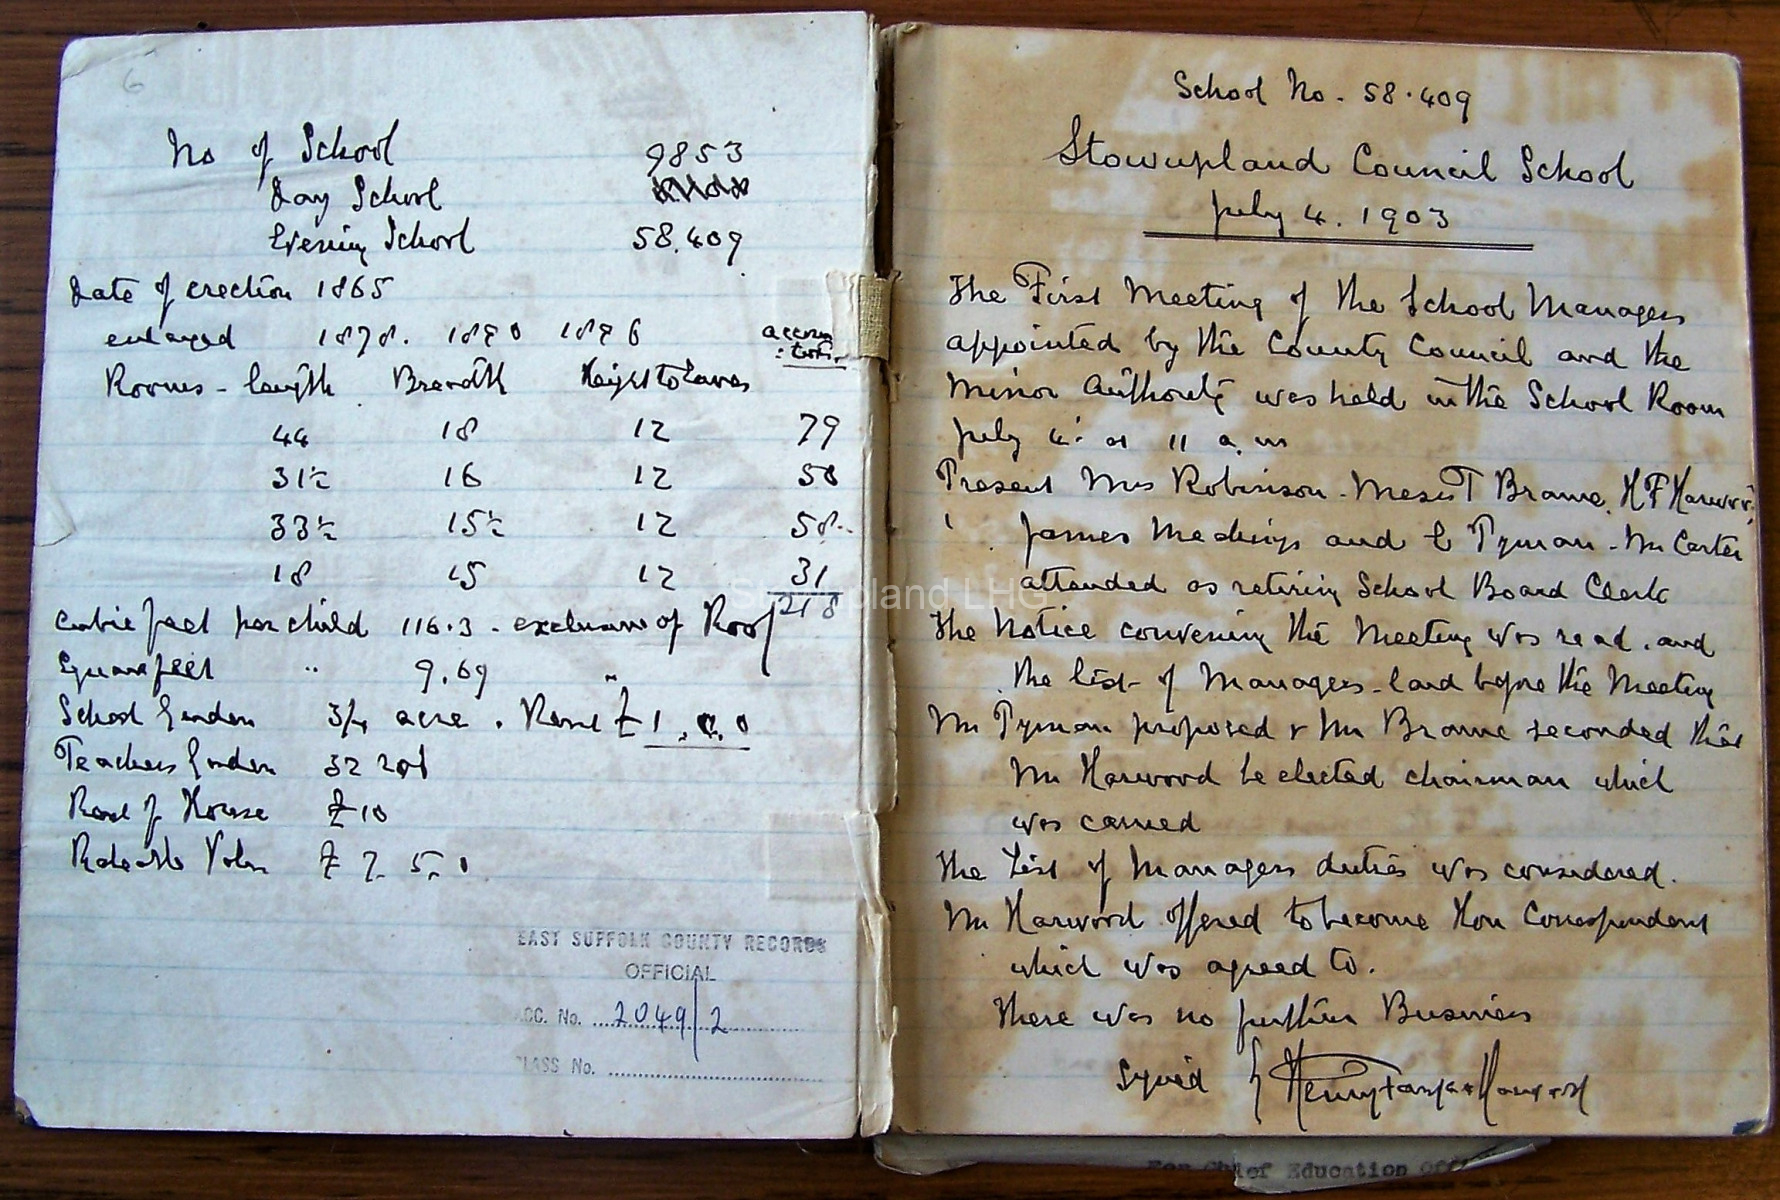 6
No of School 9853
Day School
Evening School 58.409
Date of erection 1865
enlarged 1878. 1890 1896
Rooms - length Breadth Height to Eaves
44 18 12 79
31½ 16 12 50
33½ 15½ 12 58
18 15 12 31
218
Cubic feet per child 116.3 - exclusive of Roof
Square feet " 9.69 "
School Garden 3/4 acre. Rent £1.0.0
Teachers Garden 32 rod
Rent of House £10
Rateable Value £7. 5. 0
EAST SUFFOLK COUNTY RECORDS
OFFICIAL
ACC. No. 2049/2
CLASS No.
School No. 58.409
Stowupland Council School
July 4. 1903
The First Meeting of the School Managers
appointed by the County Council and the
Minor Authority was held in the School Room
July 4. at 11 a.m
Present Mrs Robinson - Messrs T Brame, H F Harwood,
James Meckings and E Pyman - Mr Carter
attended as retiring School Board Clerk
The Notice convening the Meeting was read, and
the list of Managers laid before the Meeting
Mr Pyman proposed & Mr Brame seconded that
Mr Harwood be elected chairman which
was carried
The List of Managers duties was considered.
Mr Harwood offered to become Hon Correspondent
which was agreed to.
There was no further Business
Signed Henry Harwood
Stowupland LHG
For Chief Education Off